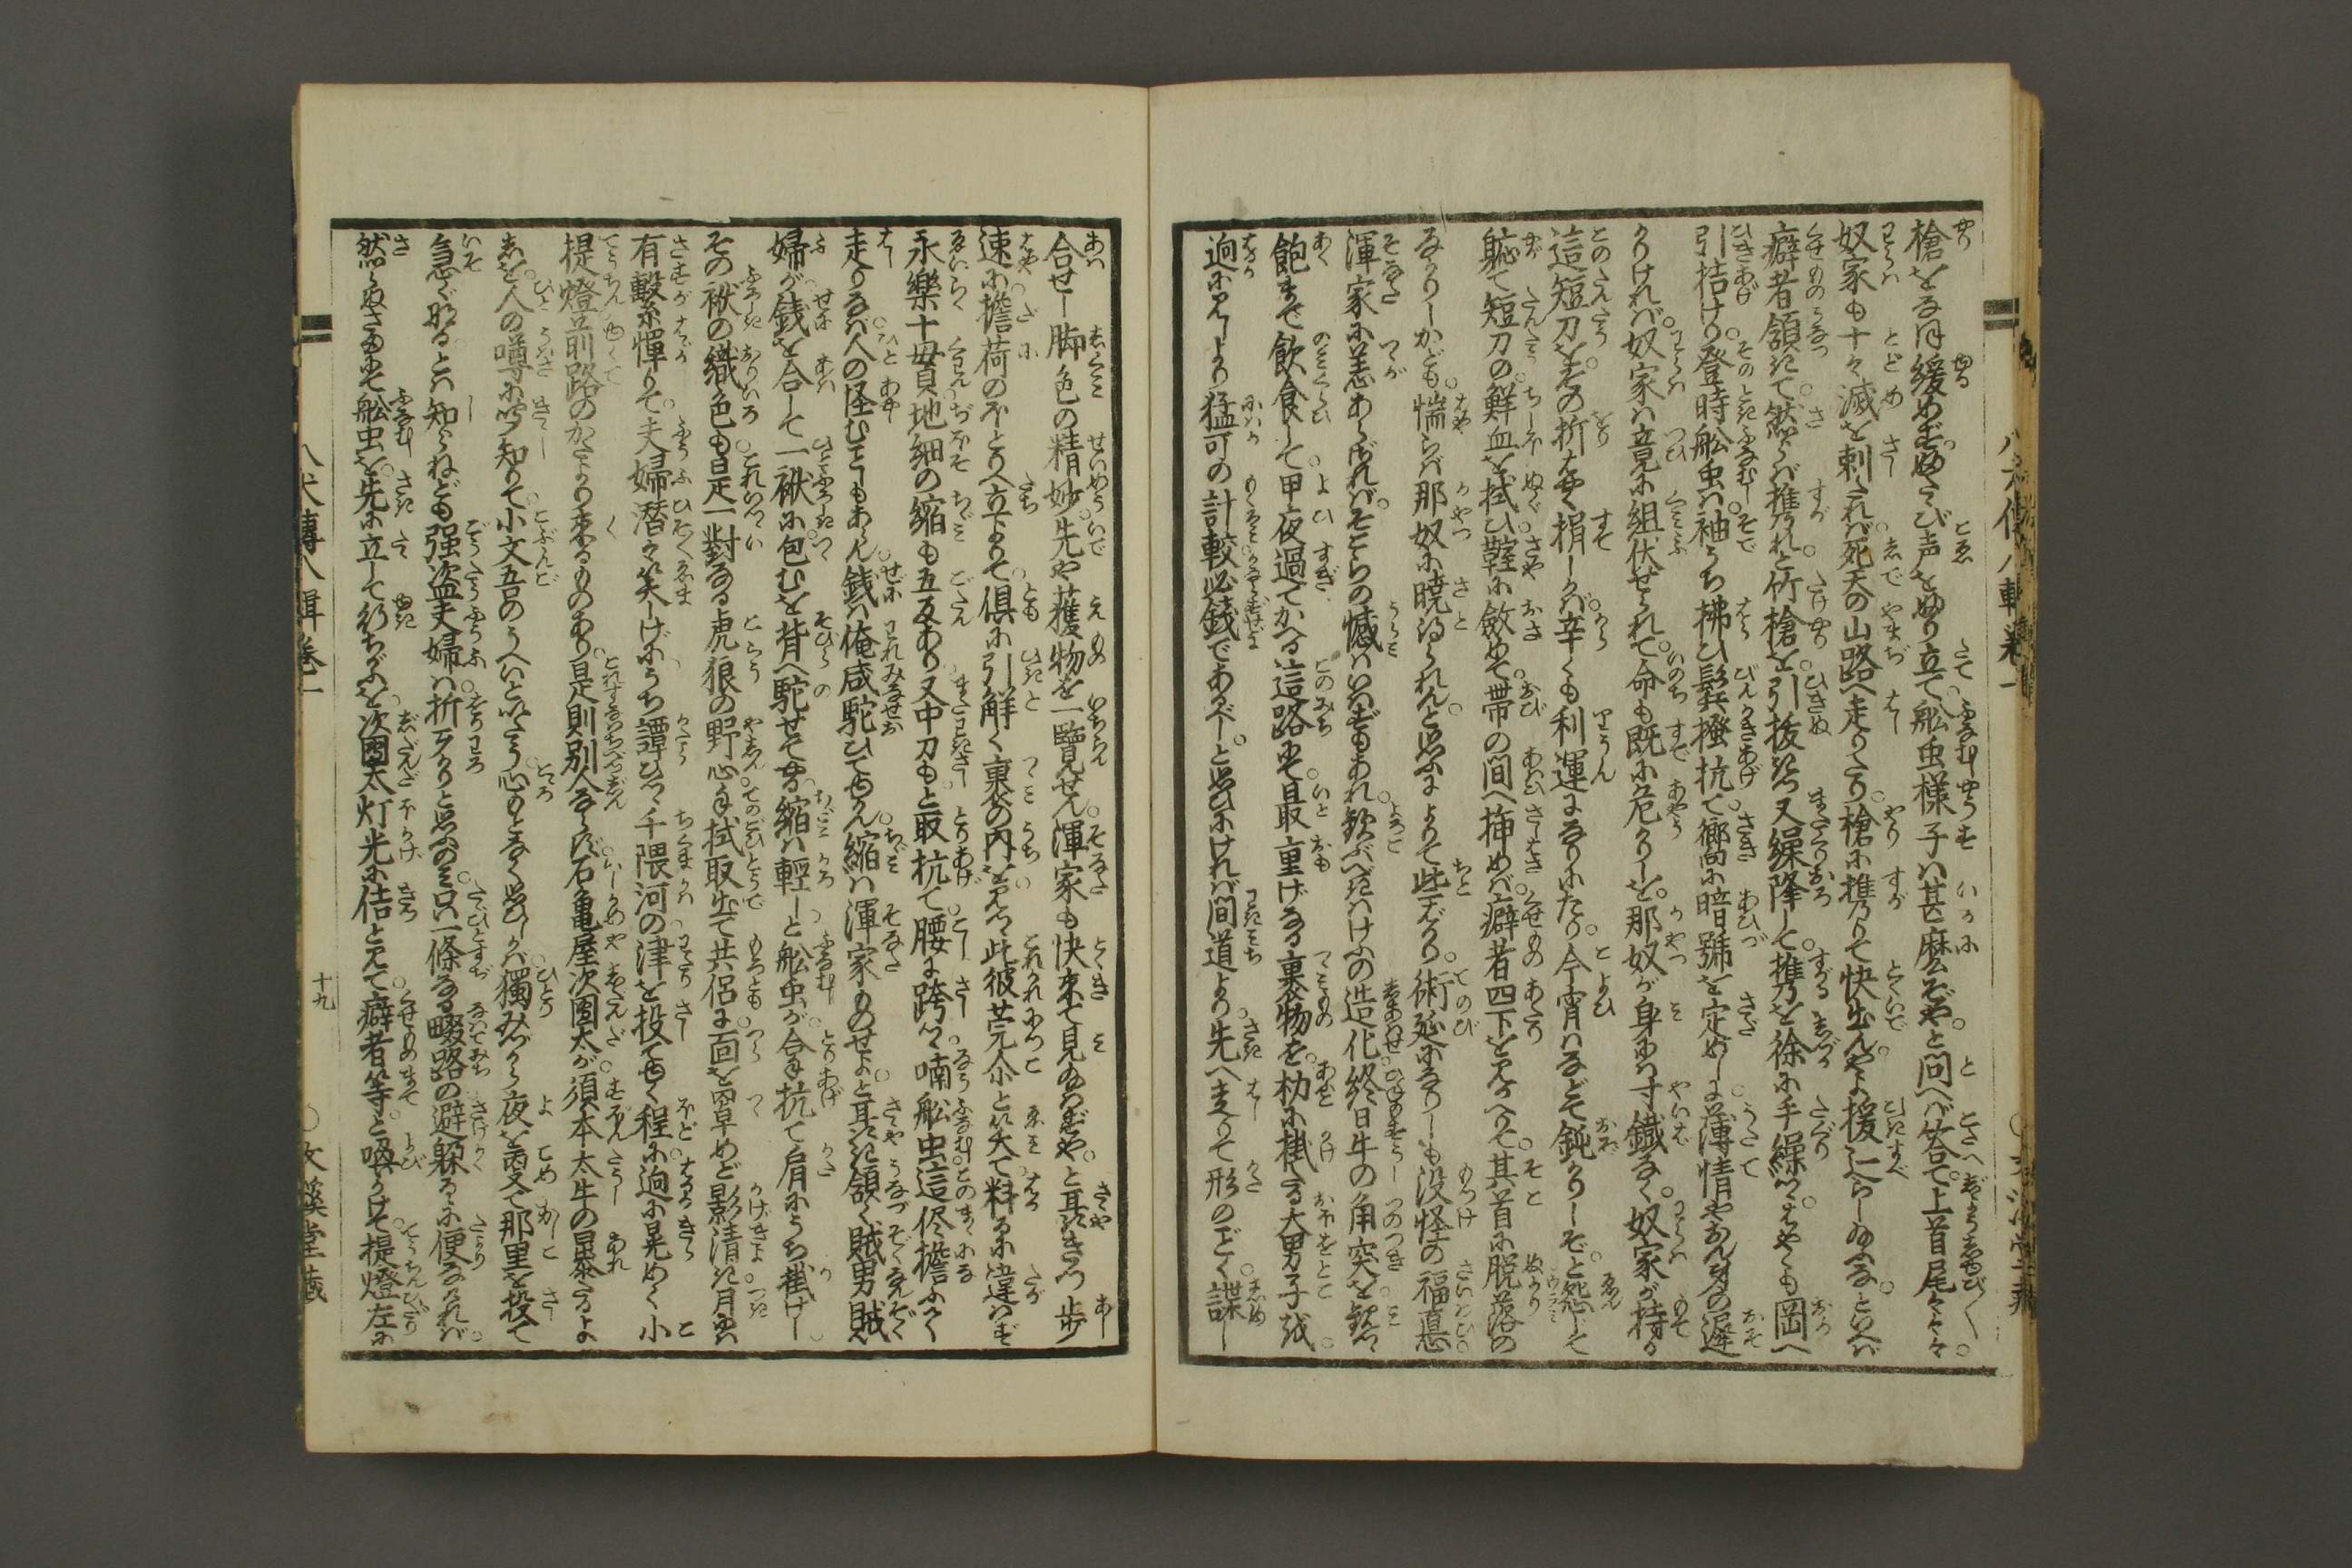 槍をなほ緩めず。ふたゝび声をふり立て。舩虫様子は甚麼ぞや。と問へば答て。上首尾々々々。
奴家も十々滅を刺たれば。死天の山路へ走りたり。槍に携りて快出んや。よ援近らしめ給ふな。といへば
癖者頷きて。然らば携れと竹槍を。引抜きつ又繰降して。携るを徐に手繰つゝ。はやくも岡へ
引拮けり。登時舩虫は。袖うち拂ひ鬂掻抗て。嚮に暗號を定めしに。薄情やおん身の遲
かりければ。奴家は竟に組伏せられて。命も既に危かりしを。那奴が身には寸鐵なく。奴家が持る
這短刀を。その折はやく捐しかば。辛くも利運になりにたり。今宵はなどて鈍かりしぞ。と怨じて
躯て短刀の。鮮血を拭ひ鞘に斂めて。帯の間へ挿めば。癖者四下を見かへりて。其首に脱落の
なかりしかども。惴らば那奴に暁られんと。思ふによりて些ばかり。術延になりしも。没怪の福悳。
渾家に恙あらざれば。そこらの憾はいはでもあれ。歓ぶべきはけふの造化。終日牛の角突を。観つゝ
飽まで飲食して。甲夜過てかへる這路にて。最重げなる裹物を。杪に掛たる大男子。を
迥に見しより猛可の計較。必銭であるべし。と思ひにければ。間道より。先へ走りて形のごとく。諜し
合せし脚色の精妙。先や獲物を一覽せん。渾家も快来て見給はずや。と耳語つゝ歩
速に。擔荷のほとりへ立よりて。倶に引解く裹の内を。見つゝ此彼莞尒と笑て。料るに違はず
永樂十毋貫地細の縮も五反あり。又中刀も。と取抗て。腰に跨つゝ。喃舩虫。這侭擔ふて
走りなば。人の怪むこともあらん。銭は俺咸駝ひてゆかん。縮は渾家ものせよ。と耳語き頷く賊男賊
婦が。銭を合して一袱に。包むを背へ駝せてやる。縮は輕し。と舩虫が。拿抗て肩にうち掛けし。
その袱の織色も。是一對なる虎狼の野心。手拭取出て共侶に。面を罩めど影清き。月には
有繋憚りて。夫婦潜々笑しげに。うち譚ひつゝ千隈河の。津を投てゆく程に。迥に晃めく小
提燈。前路のかたより来るものあり。是則別人ならず。石亀屋次團太が。須本太牛の暴たるよ
しを。人の噂に聞知りて。小文吾のうへいといたう。心もとなく思ひしかば。獨みづから夜を罩て。那里を投て
急ぐなるとは知らねども。强盗夫婦は。折わろしと思ふのみ。只一條なる畷路の。避躱るに便なければ。
然らぬさまにて舩虫を。先に立して行ちがふを。次團太灯光に佶と見て。癖者等。と喚かけて。提燈左に
八犬傳八輯卷一
十九
○文溪堂藏